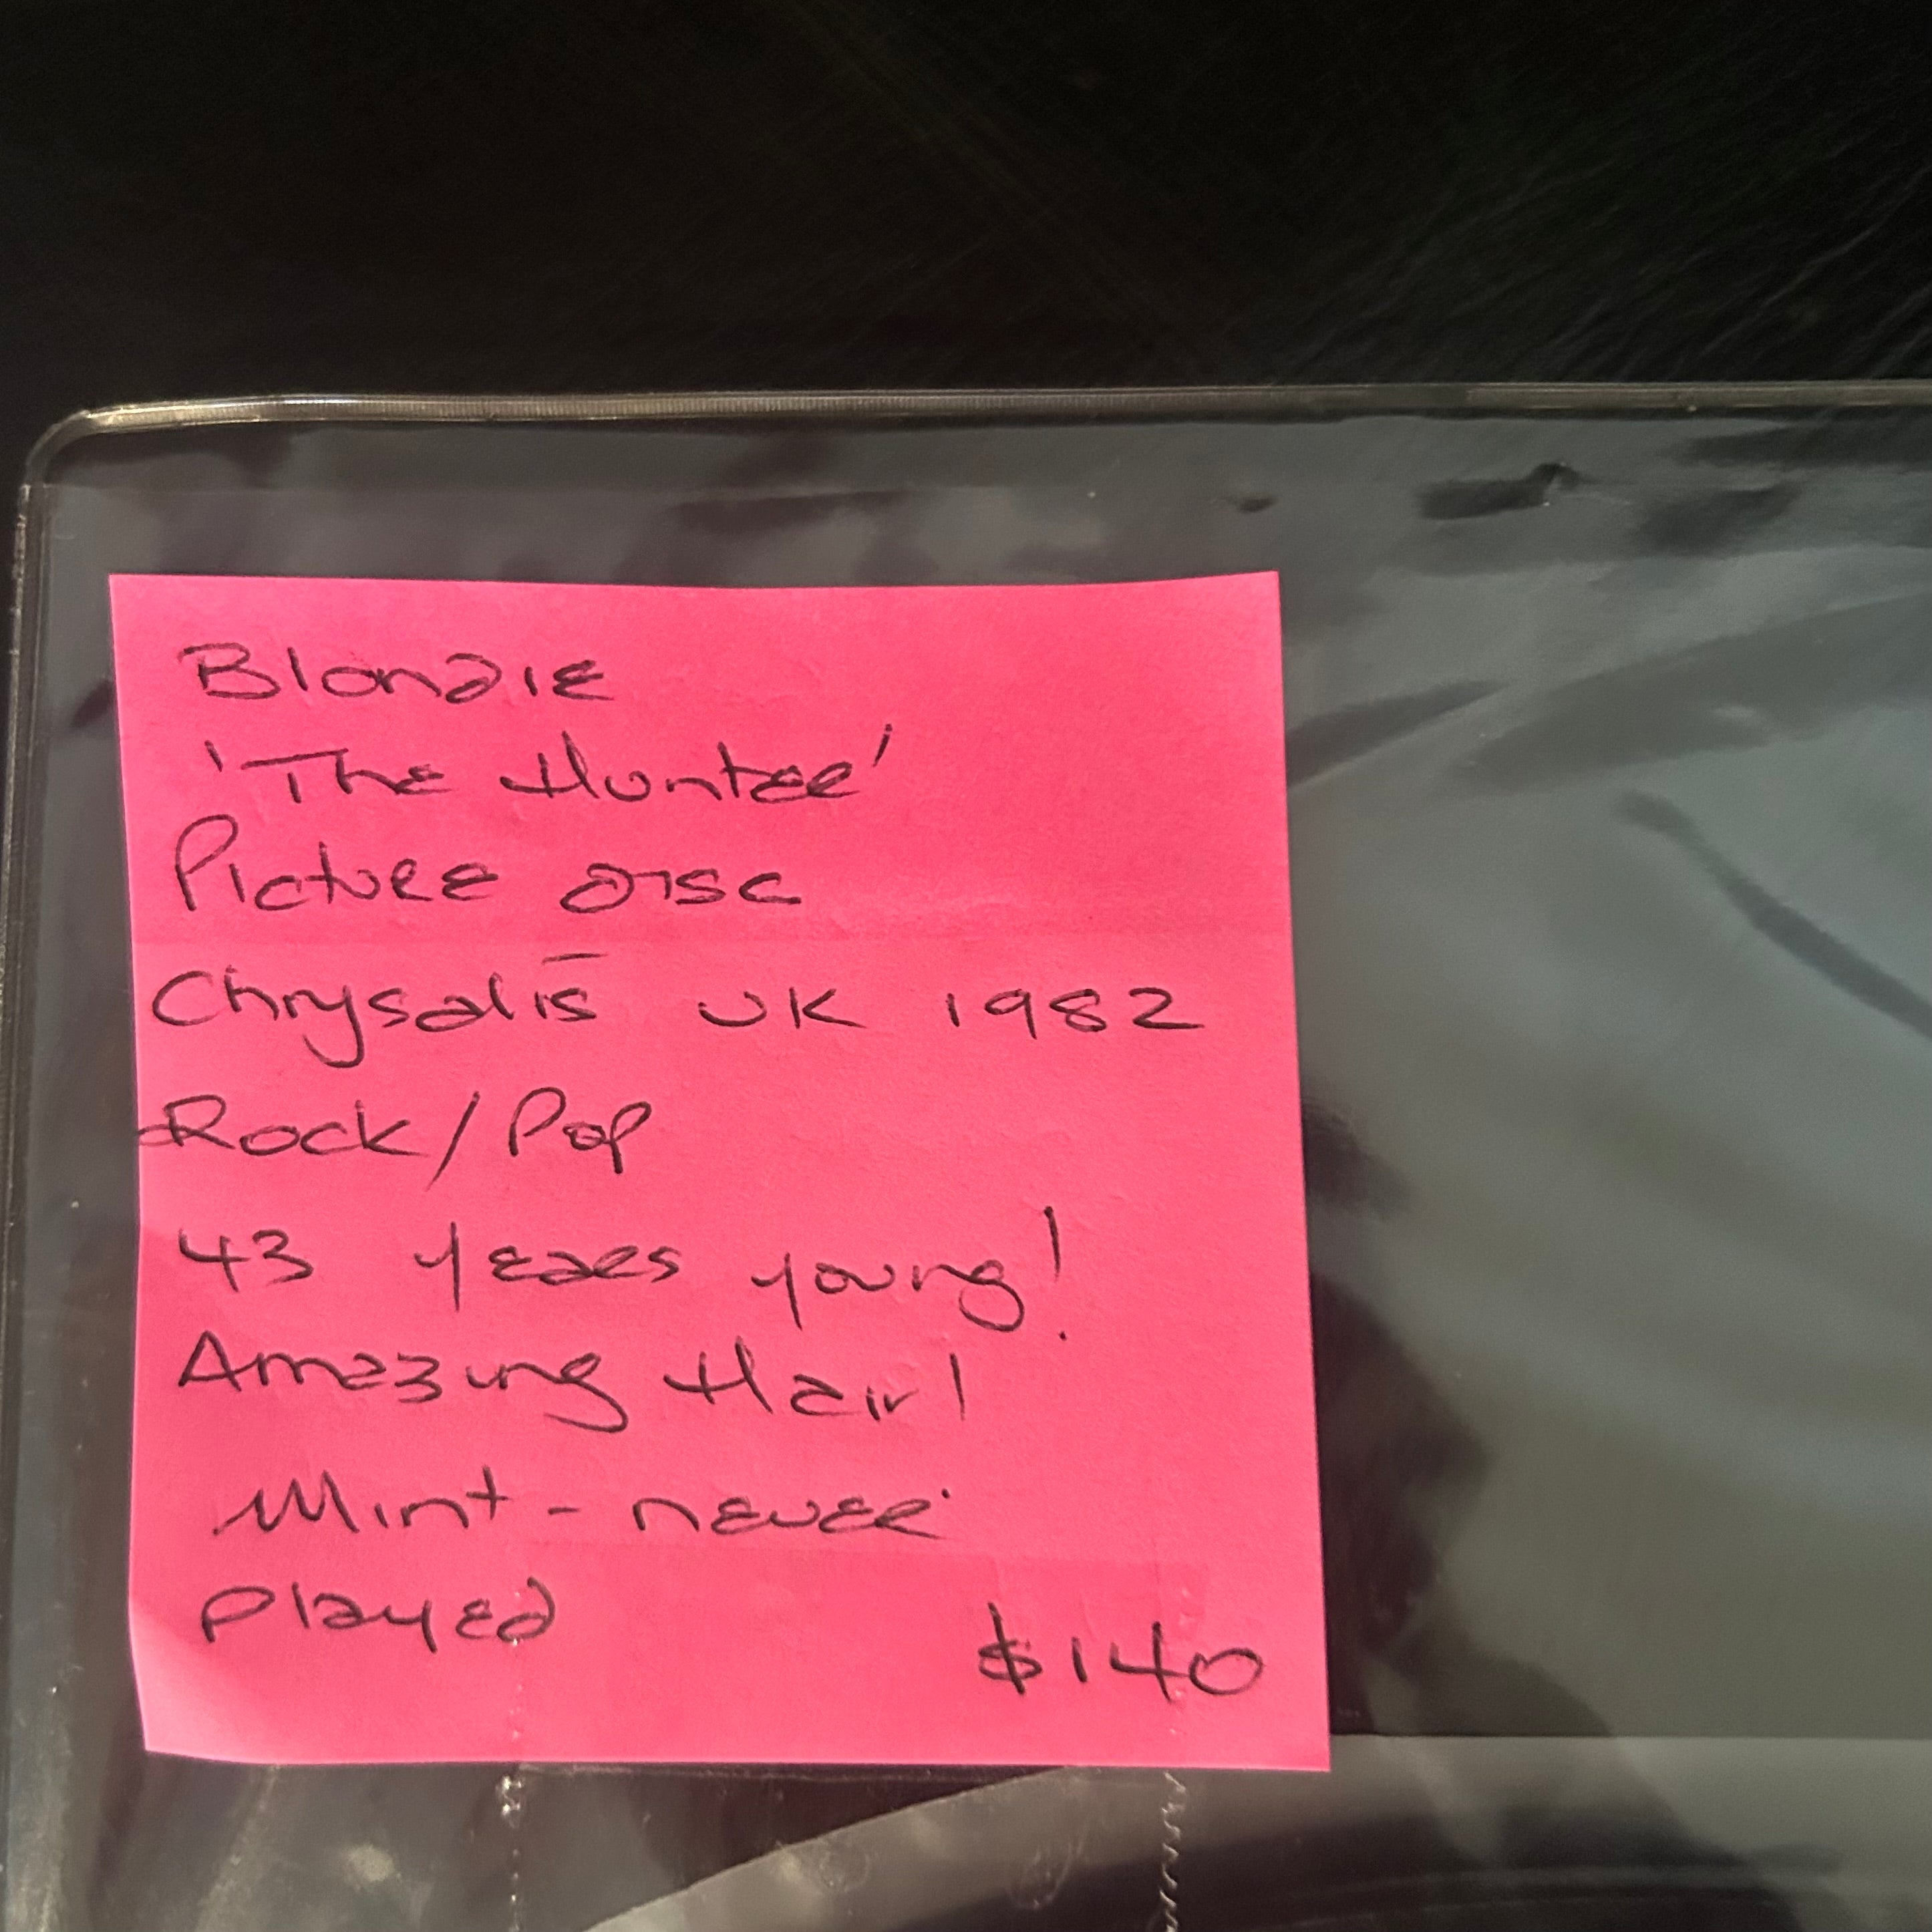 Blondie
'The Hunter'
Picture disc
Chrysalis UK 1982
Rock/Pop
43 years young!
Amazing Hair!
Mint - never
played
$140